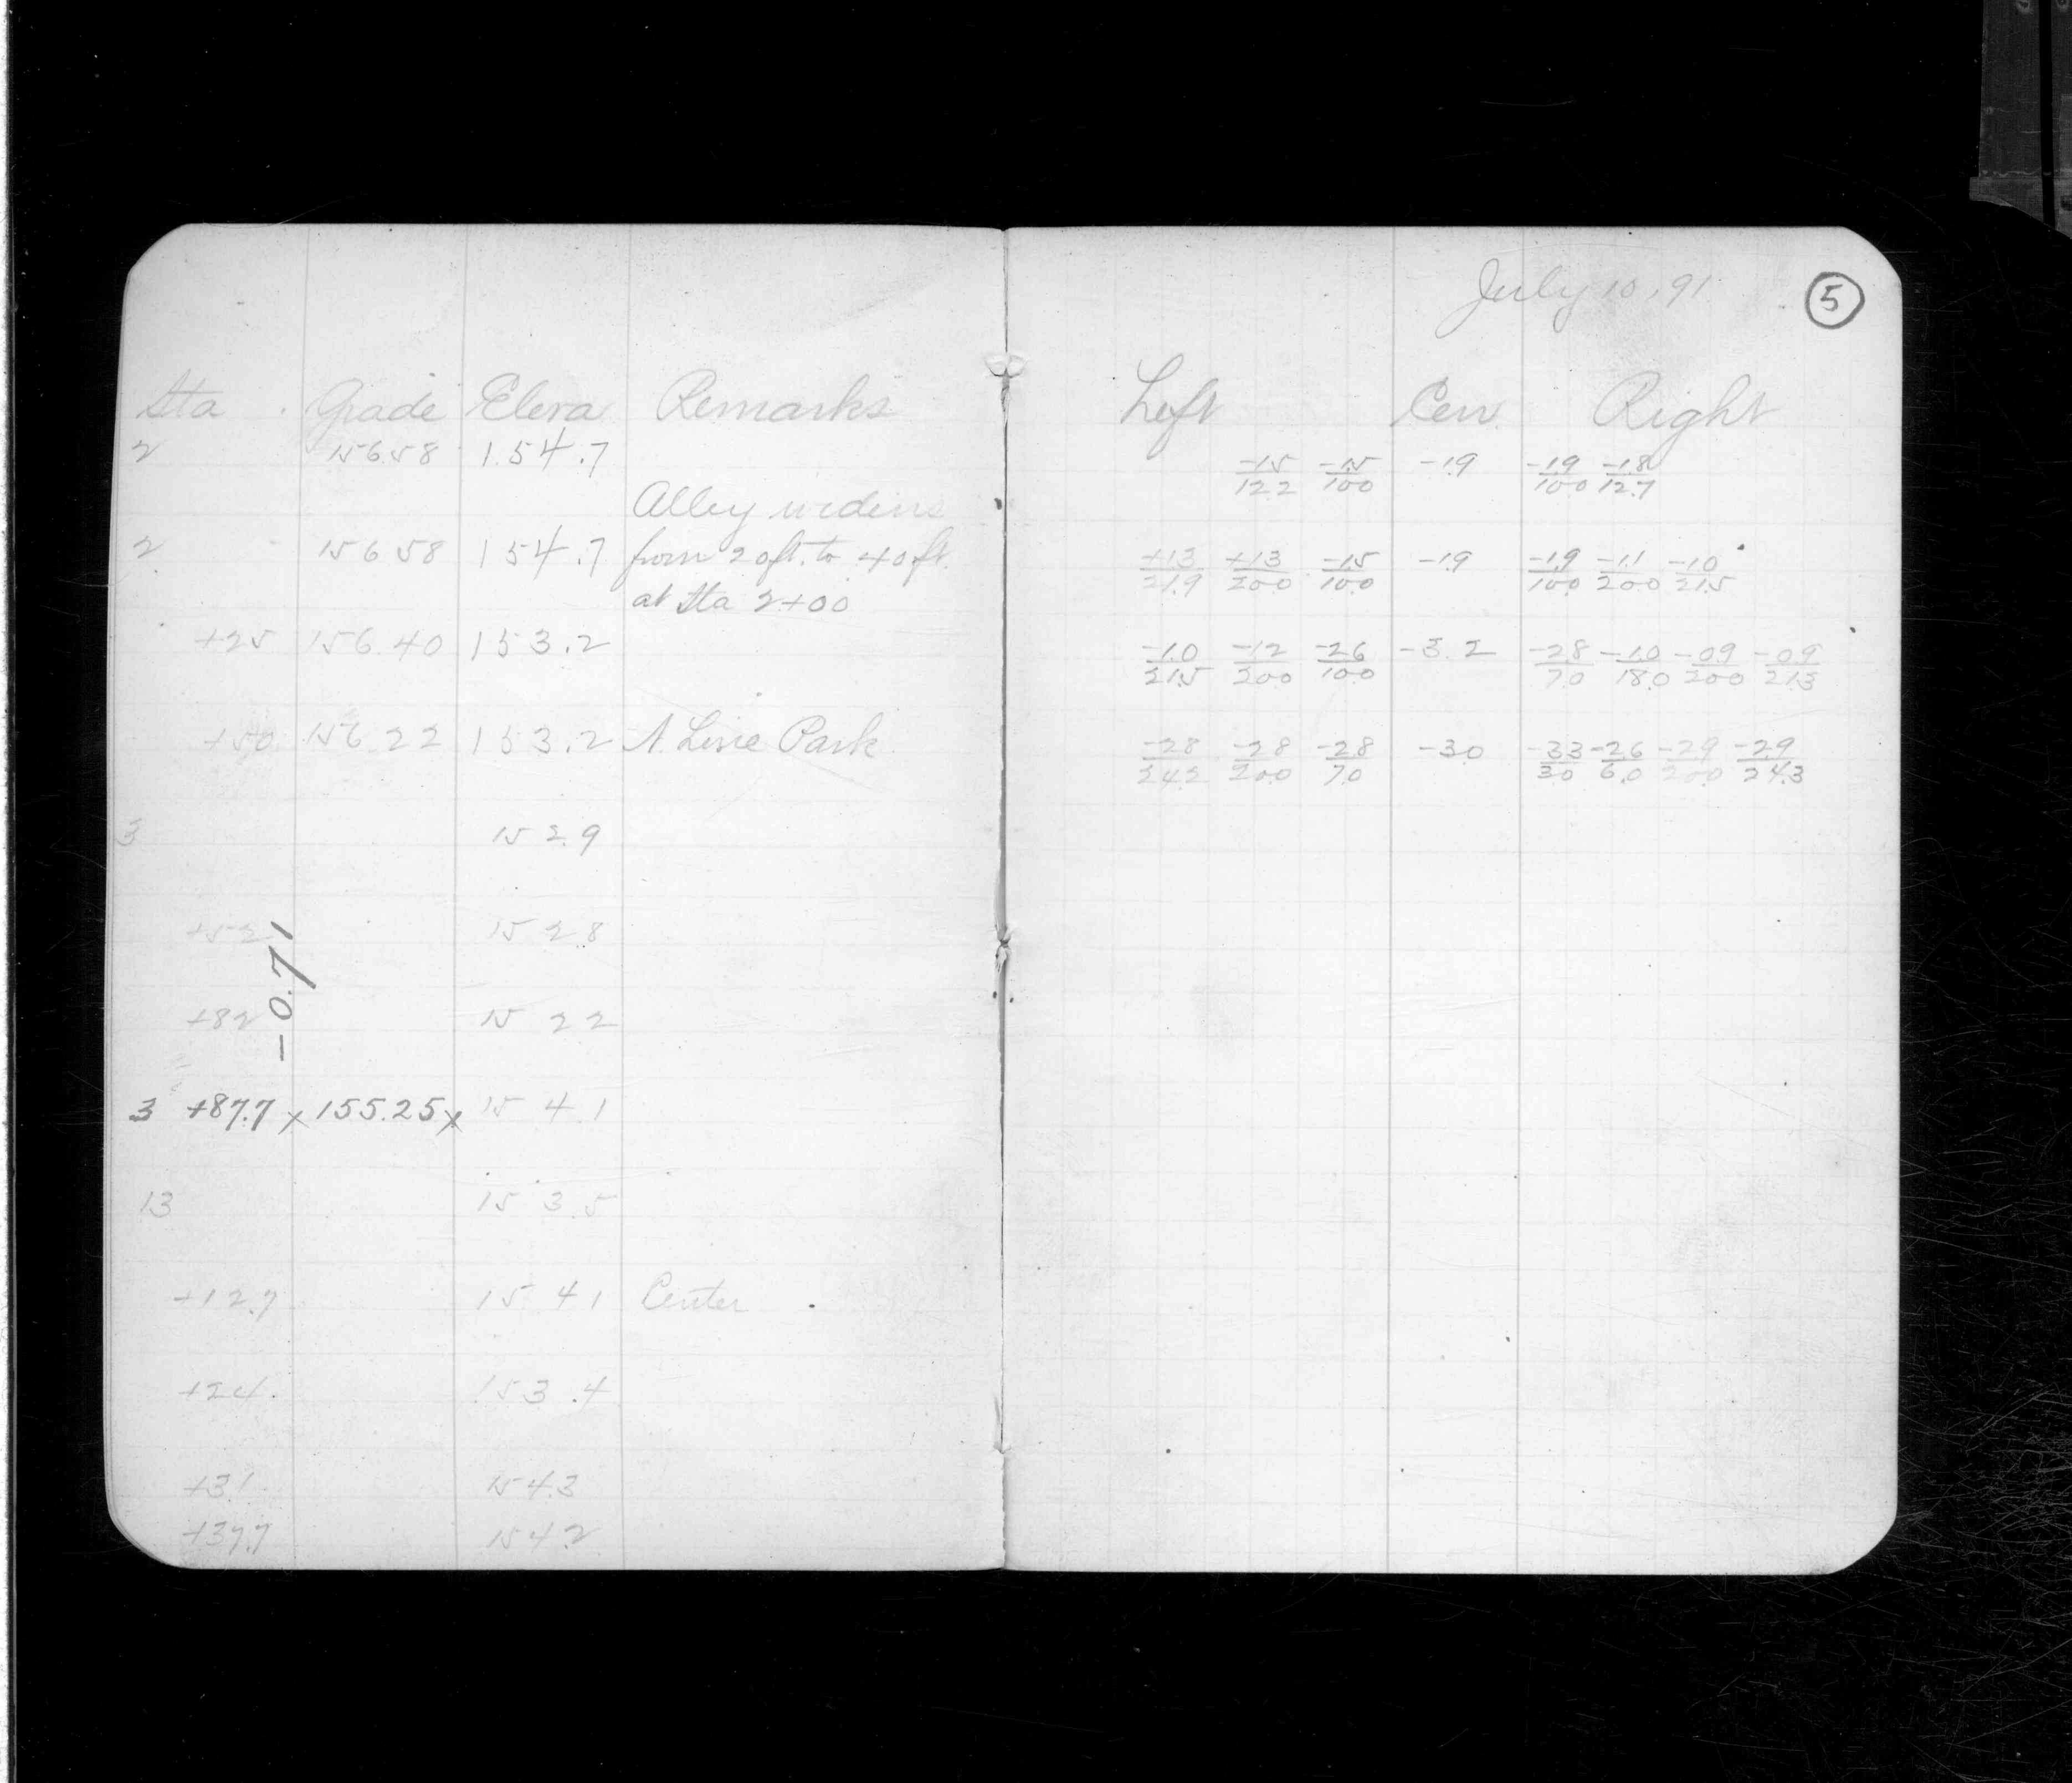 July 10, 91
5
Sta Grade Eleva Remarks Left Cen Right
2 156.58 154.7 -1.5/12.2 -1.5/10.0 -1.9 -1.9/10.0 -1.8/12.7
Alley widens
2 156 58 154.7 from 20ft. to 40ft. +1.3/21.9 +1.3/20.0 -1.5/10.0 -1.9 -1.9/10.0 -1.1/20.0 -1.0/21.5
at Sta 2+00
+25 156.40 153.2 -1.0/21.5 -1.2/20.0 -2.6/10.0 -3.2 -2.8/7.0 -1.0/18.0 -0.9/20.0 -0.9/21.3
+50 156.22 153.2 N. Line Park -2.8/24.2 -2.8/20.0 -2.8/7.0 -3.0 -3.3/3.0 -2.6/6.0 -2.9/20.0 -2.9/24.3
3 152.9
+52 152.8
-0.71
+82 152 2
3 +87.7 x 155.25 x 154.1
13 153.5
+12.7 154 1 Center
+24. 153.4
+31 154.3
+37.7 154.2